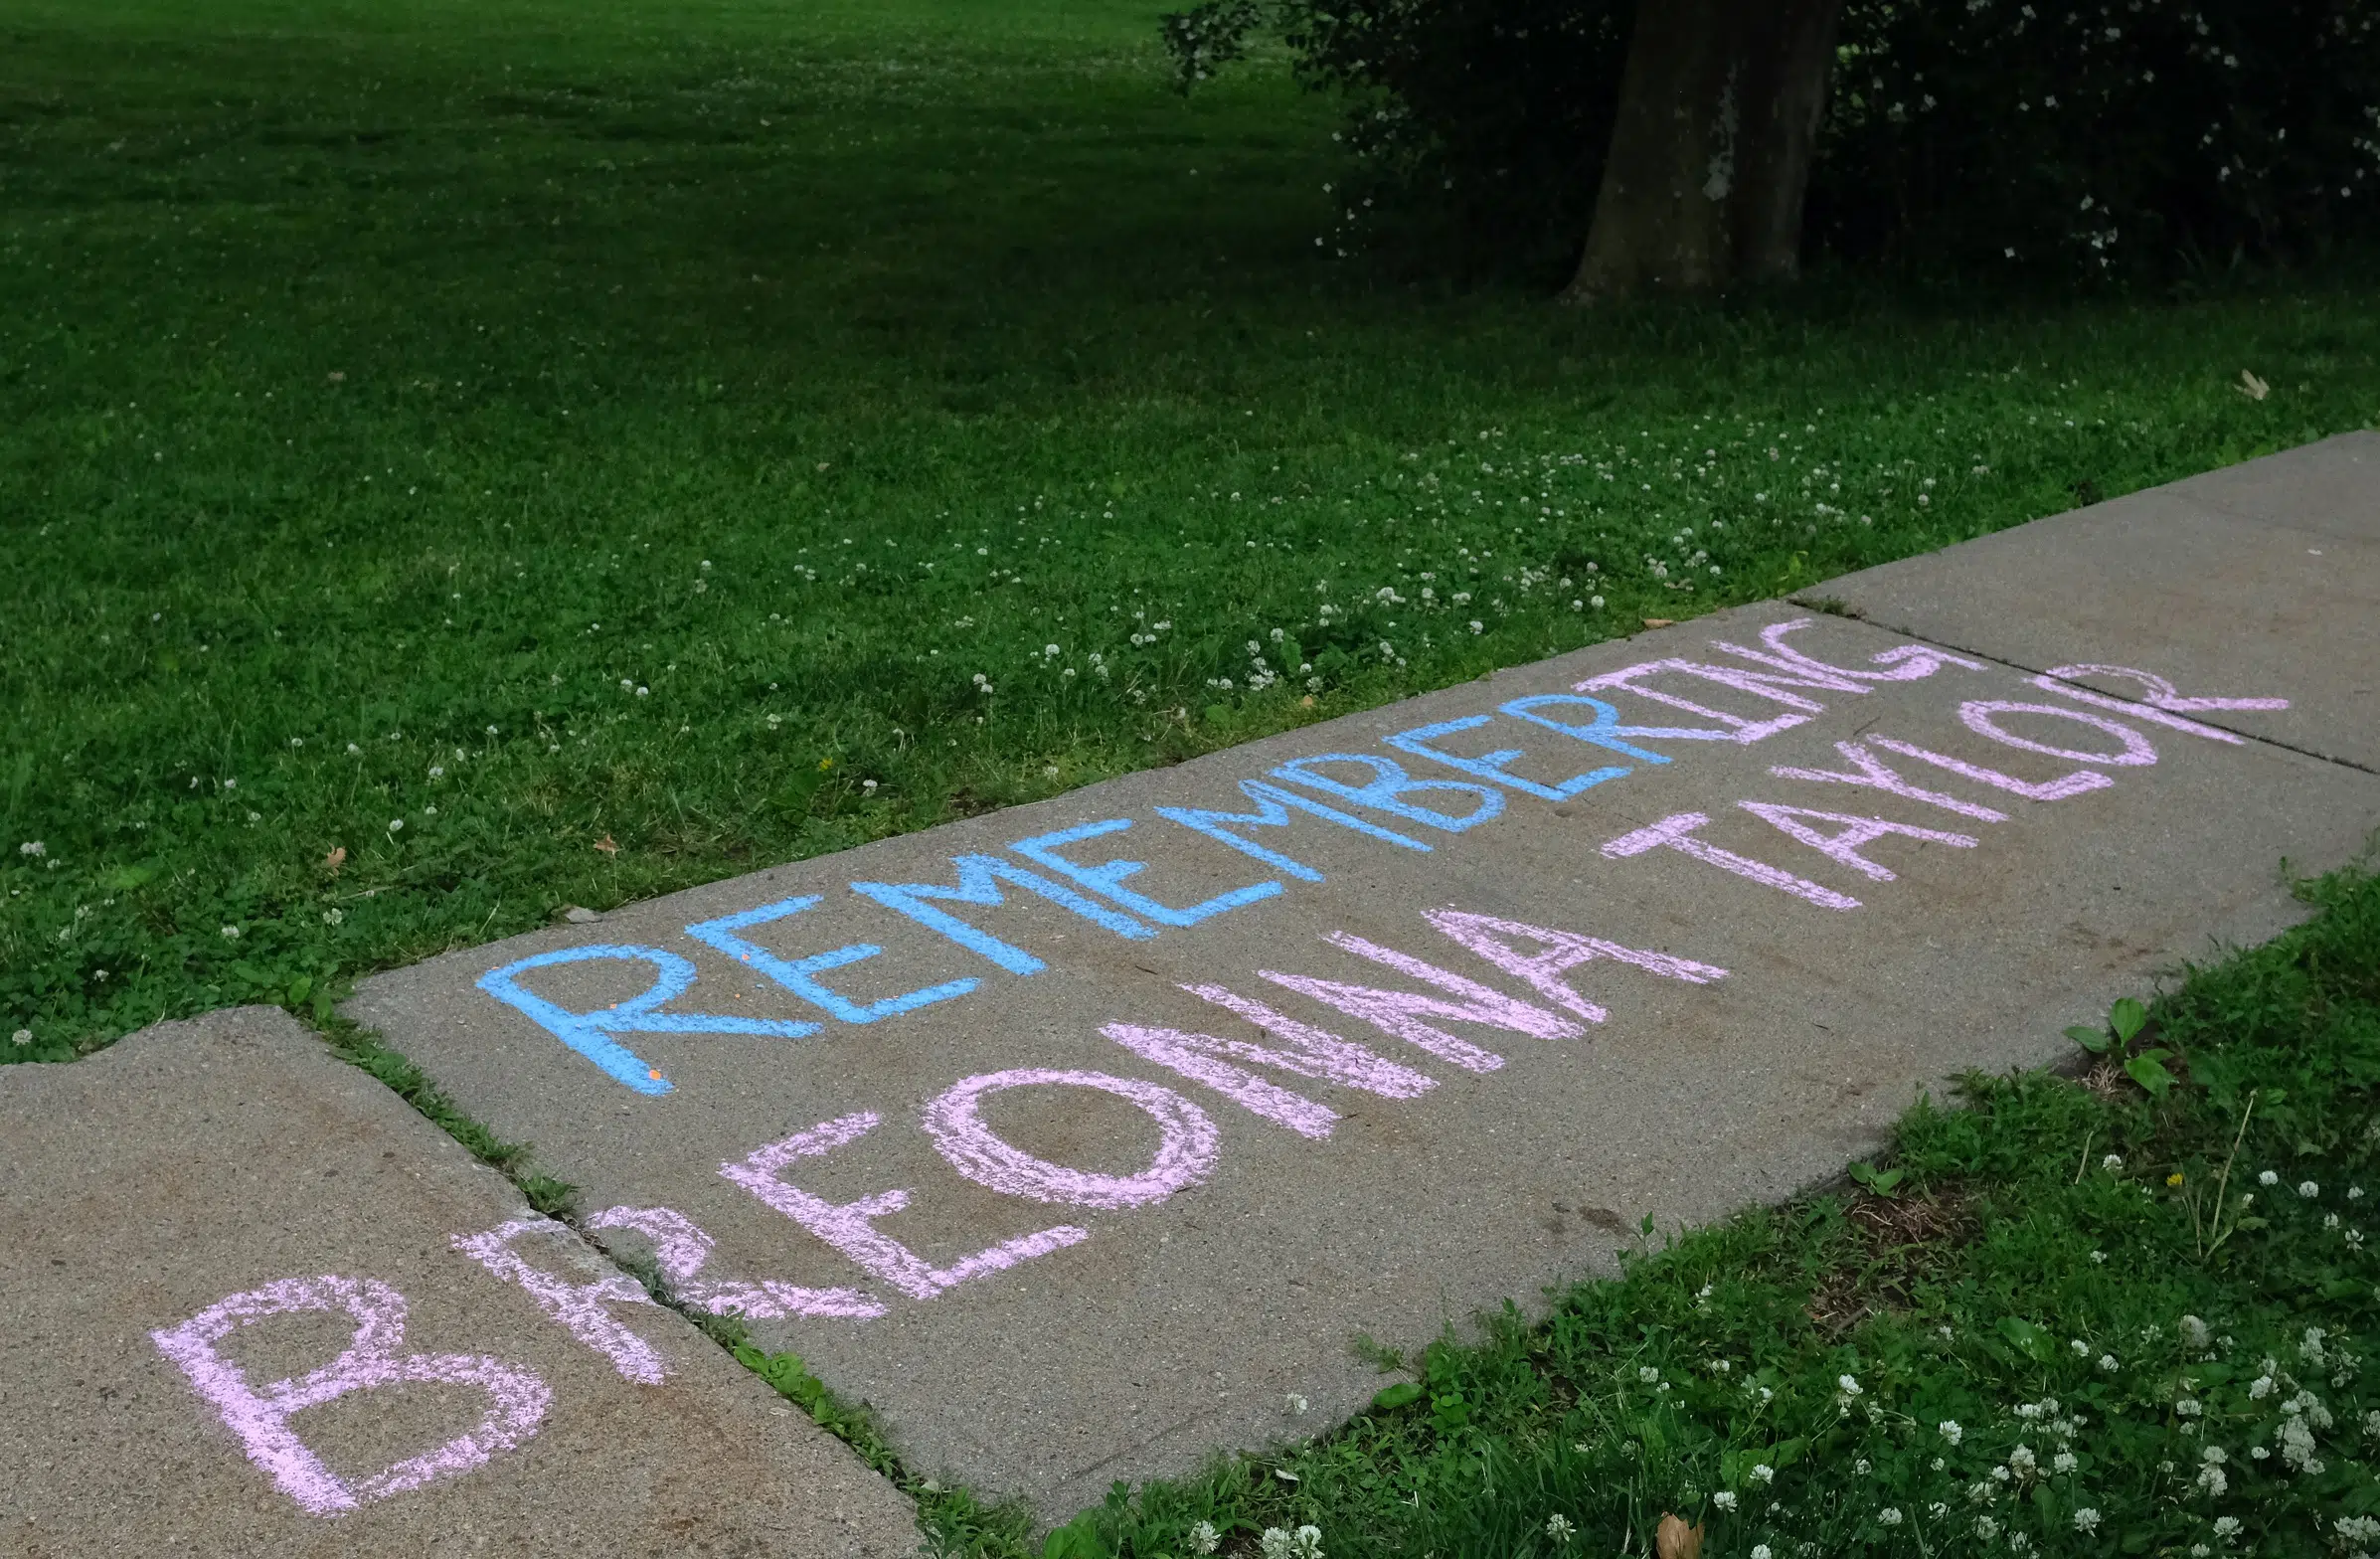 REMEMBERING
BREONNA TAYLOR